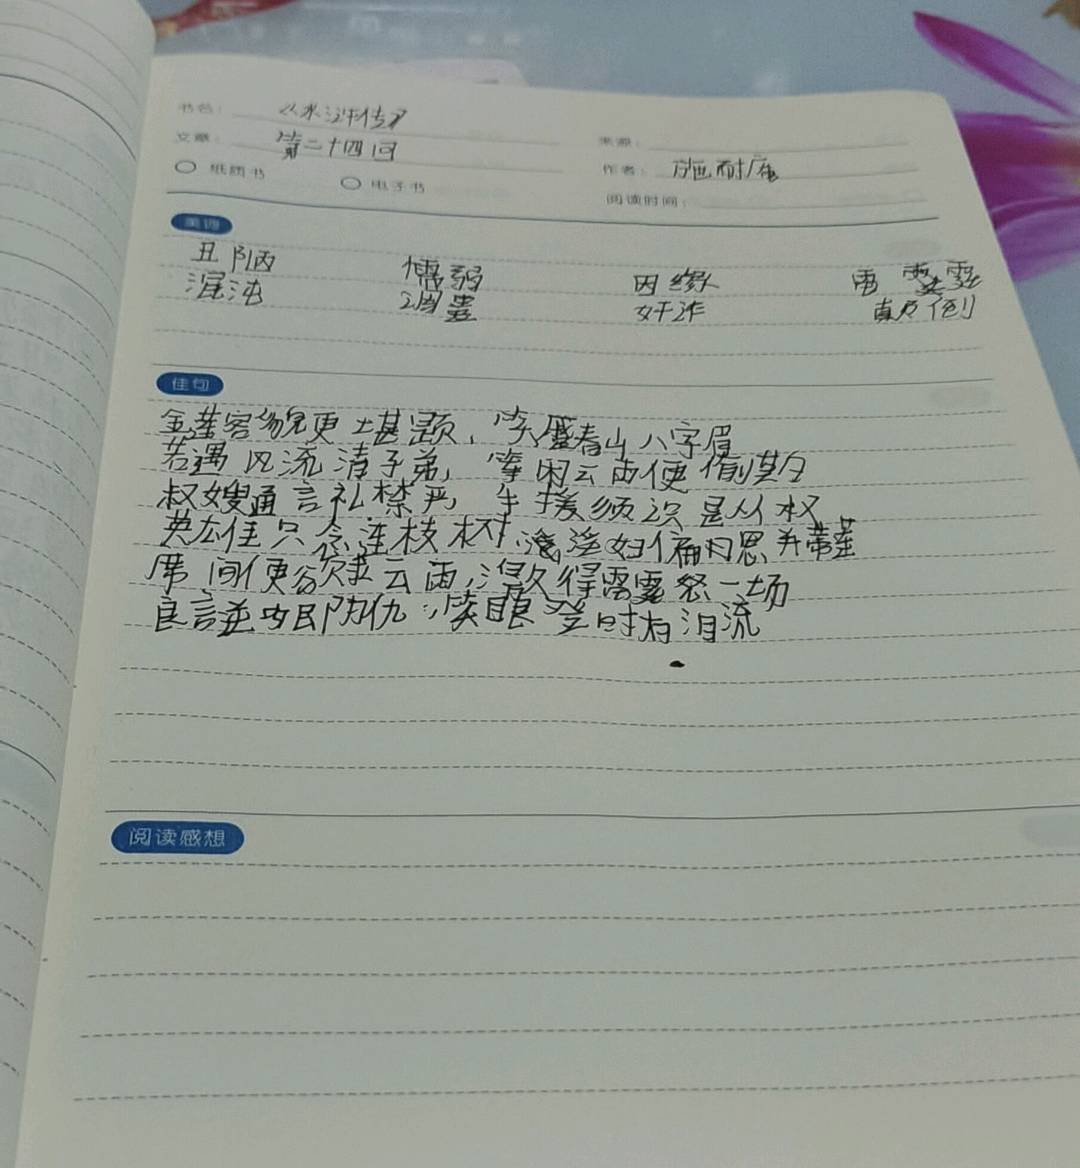 书名： 《水浒传》
文章： 第二十四回 来源：
纸质书 电子书 作者： 施耐庵
阅读时间：
美词
丑陋 懦弱 因缘 雨
混沌 调 奸诈 颠倒
佳句
金莲容貌更堪题，笑蹙春山八字眉
若遇风流清子弟，等闲云雨便偷期
叔嫂通言礼禁严，手援须识是从权
英雄只念连枝树，淫妇偏思并蒂莲
席间便欲云雨，得雷霆怒一场
良言逆即为仇，笑眼登时有泪流
阅读感想